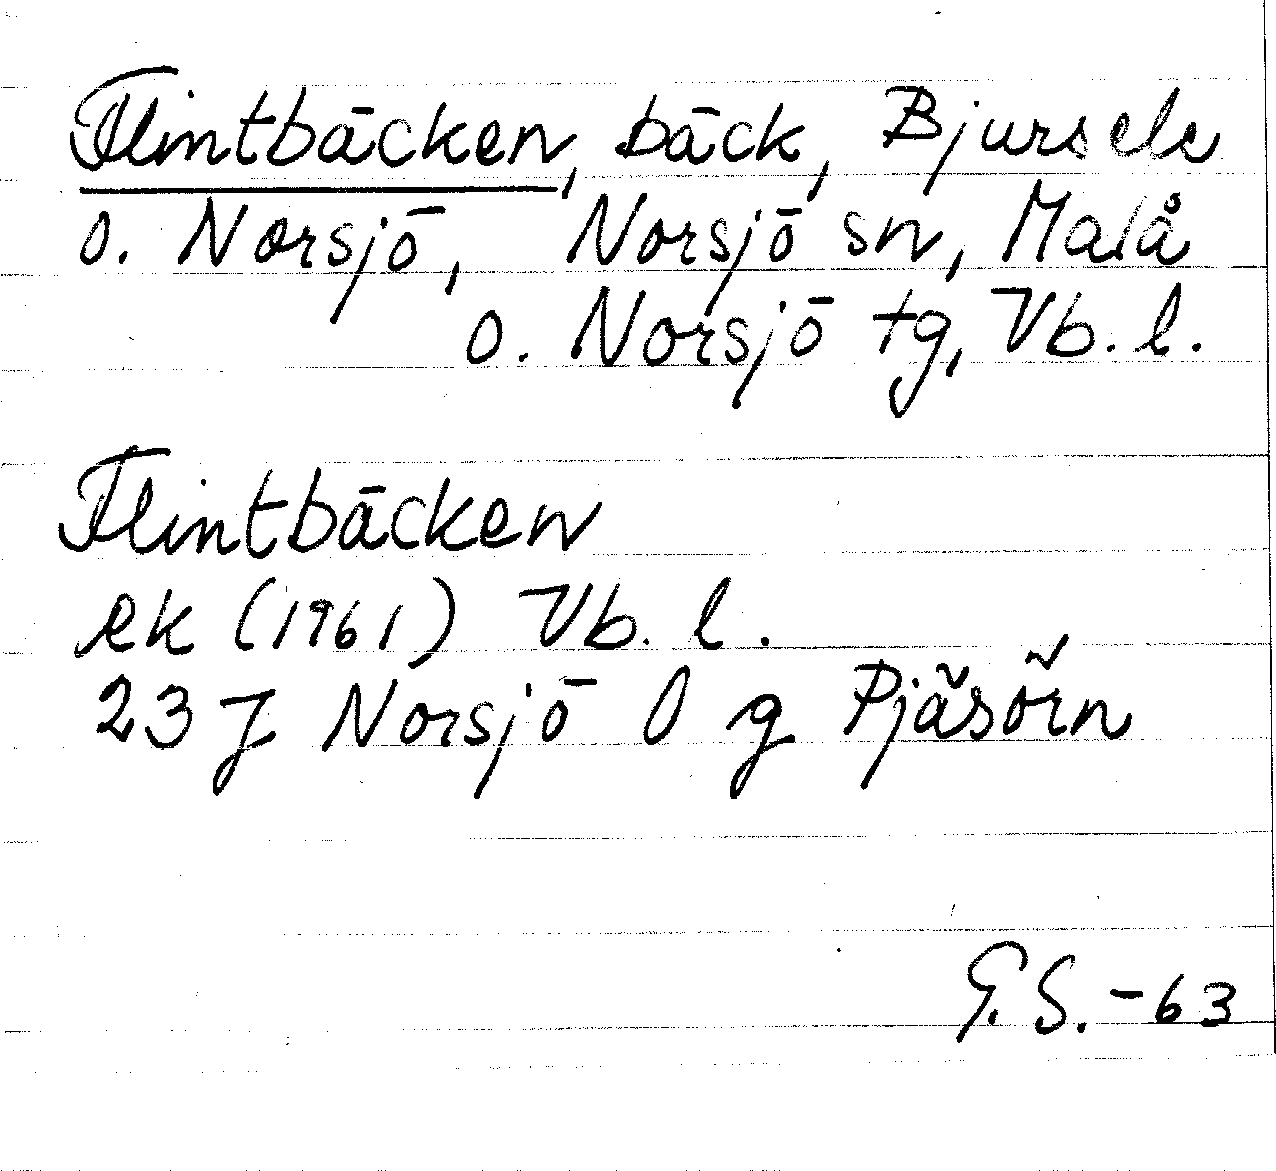 Flintbäcken, bäck, Bjursele
o. Norsjö, Norsjö sn, Malå
o. Norsjö tg, Vb. l.
Flintbäcken
ek (1961) Vb. l.
23 J Norsjö 0 g Pjäsörn
G.S. -63